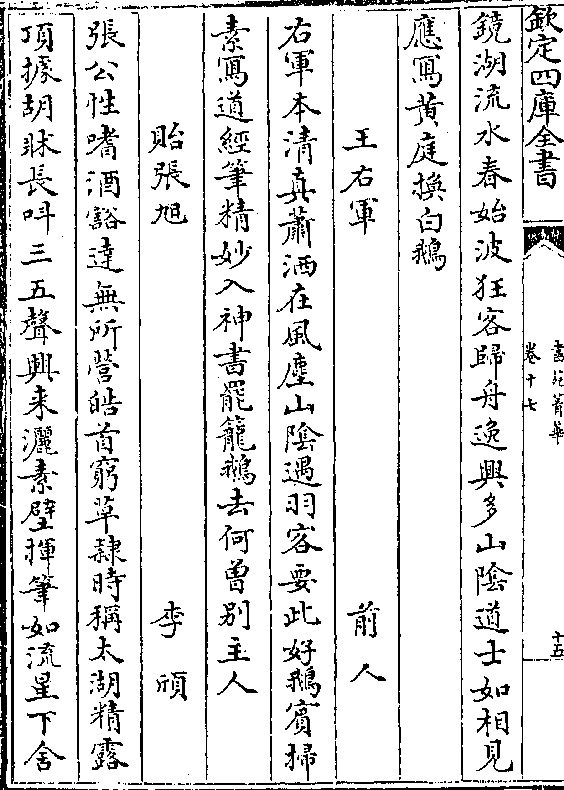 欽定四庫全書
書苑菁華
卷十七
十五
鏡湖流水春始波狂客歸舟逸興多山陰道士如相見
應寫黄庭換白鵝
王右軍 前人
右軍本清真蕭洒在風塵山陰遇羽客要此好鵝賓掃
素寫道經筆精妙入神書罷籠鵝去何曾别主人
貽張旭 李頎
張公性嗜酒豁達無所營皓首窮草隸時稱太湖精露
頂據胡牀長呌三五聲興来灑素壁揮筆如流星下舍